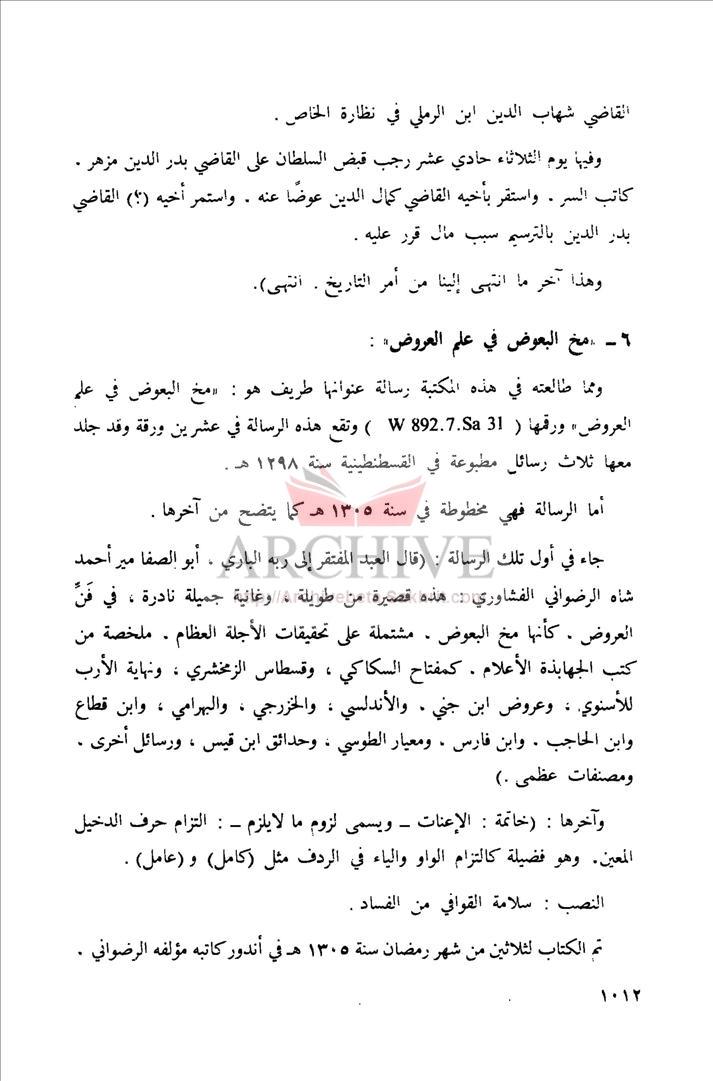 القاضي شهاب الدين ابن الرملي في نظارة الخاص .
وفيها يوم الثلاثاء حادي عشر رجب قبض السلطان على القاضي بدر الدين مزهر .
كاتب السر . واستقر بأخيه القاضي كمال الدين عوضًا عنه . واستمر أخيه (؟) القاضي
بدر الدين بالترسيم سبب مال قرر عليه .
وهذا آخر ما انتهى إلينا من أمر التاريخ . انتهى).
٦ ـ «مخ البعوض في علم العروض» :
ومما طالعته في هذه المكتبة رسالة عنوانها طريف هو : «مخ البعوض في علم
العروض» ورقمها ( W 892.7.Sa 31 ) وتقع هذه الرسالة في عشرين ورقة وقد جلد
معها ثلاث رسائل مطبوعة في القسطنطينية سنة ١٢٩٨ هـ .
أما الرسالة فهي مخطوطة في سنة ١٣٠٥ هـ كما يتضح من آخرها .
جاء في أول تلك الرسالة : (قال العبد المفتقر إلى ربه الباري ، أبو الصفا مير أحمد
ARCHIVE
شاه الرضواني الفشاوري : هذه قصيرة من طويلة ، وغانية جميلة نادرة ، في فَنِّ
العروض . كأنها مخ البعوض . مشتملة على تحقيقات الأجلة العظام . ملخصة من
كتب الجهابذة الأعلام . كمفتاح السكاكي ، وقسطاس الزمخشري ، ونهاية الأرب
للأسنوي ، وعروض ابن جني . والأندلسي ، والخزرجي ، والبهرامي ، وابن قطاع
وابن الحاجب . وابن فارس . ومعيار الطوسي ، وحدائق ابن قيس ، ورسائل أخرى .
ومصنفات عظمى .)
وآخرها : (خاتمة : الإعنات ـ ويسمى لزوم ما لايلزم ـ : التزام حرف الدخيل
المعين. وهو فضيلة كالتزام الواو والياء في الردف مثل (كامل) و (عامل) .
النصب : سلامة القوافي من الفساد .
تم الكتاب لثلاثين من شهر رمضان سنة ١٣٠٥ هـ في أندور كاتبه مؤلفه الرضواني .
١٠١٢